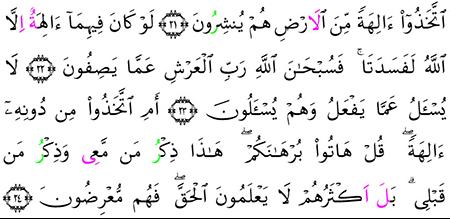 اَتَّخَذُوٓاْ ءَالِهَةٗ مِّنَ اَلَارۡضِ هُمۡ يُنشِرُونَ ٢١ لَوۡ كَانَ فِيهِمَآ ءَالِهَةٌ اِلَّا
اَللَّهُ لَفَسَدَتَاۚ فَسُبۡحَٰنَ اَللَّهِ رَبِّ اِلۡعَرۡشِ عَمَّا يَصِفُونَ ٢٢ لَا
يُسۡـَٔلُ عَمَّا يَفۡعَلُ وَهُمۡ يُسۡـَٔلُونَ ٢٣ أَمِ اِتَّخَذُواْ مِن دُونِهِۦٓ
ءَالِهَةٗۖ قُلۡ هَاتُواْ بُرۡهَٰنَكُمۡۖ هَٰذَا ذِكۡرُ مَن مَّعِي وَذِكۡرُ مَن
قَبۡلِيۚ بَلَ اَكۡثَرُهُمۡ لَا يَعۡلَمُونَ اَلۡحَقَّۖ فَهُم مُّعۡرِضُونَ ٢٤